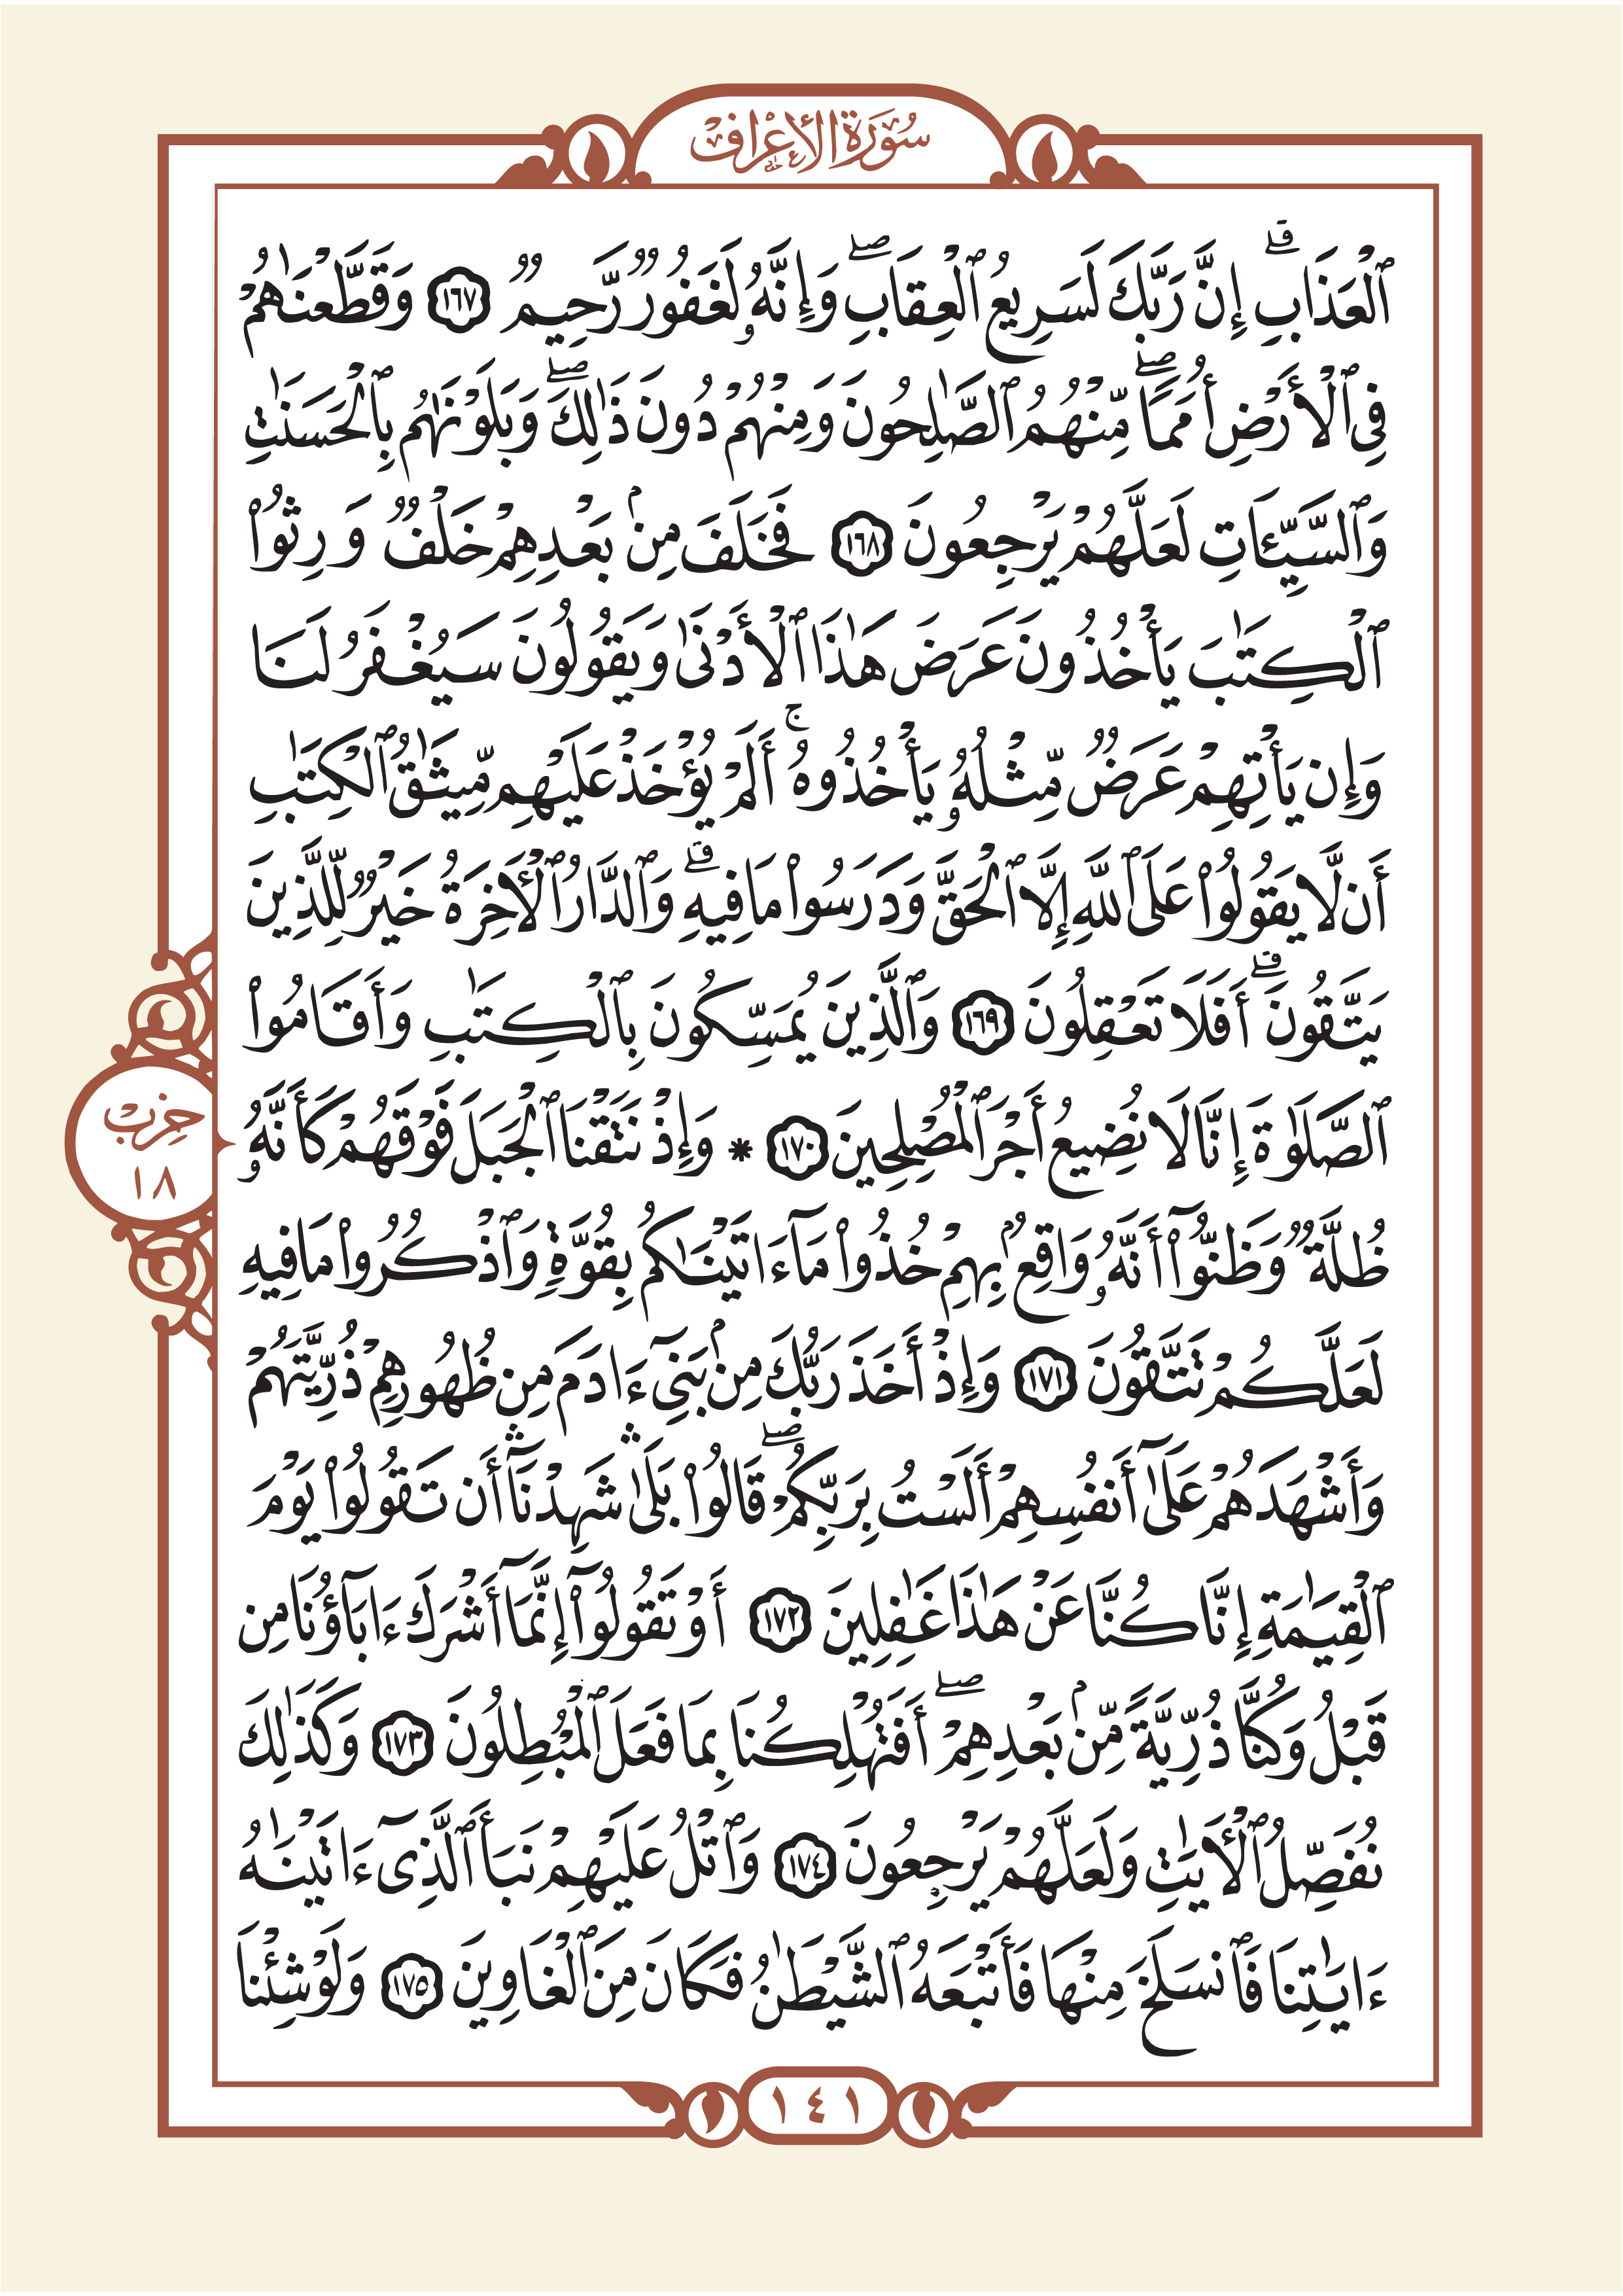 سُورَةُ الأَعْرَافِ
ٱلْعَذَابِۗ إِنَّ رَبَّكَ لَسَرِيعُ ٱلْعِقَابِۖ وَإِنَّهُۥ لَغَفُورٌ رَّحِيمٌ ١٦٧ وَقَطَّعْنَٰهُمْ
فِى ٱلْأَرْضِ أُمَمًاۖ مِّنْهُمُ ٱلصَّٰلِحُونَ وَمِنْهُمْ دُونَ ذَٰلِكَۖ وَبَلَوْنَٰهُم بِٱلْحَسَنَٰتِ
وَٱلسَّيِّـَٔاتِ لَعَلَّهُمْ يَرْجِعُونَ ١٦٨ فَخَلَفَ مِنۢ بَعْدِهِمْ خَلْفٌ وَرِثُوا۟
ٱلْكِتَٰبَ يَأْخُذُونَ عَرَضَ هَٰذَا ٱلْأَدْنَىٰ وَيَقُولُونَ سَيُغْفَرُ لَنَا
وَإِن يَأْتِهِمْ عَرَضٌ مِّثْلُهُۥ يَأْخُذُوهُۚ أَلَمْ يُؤْخَذْ عَلَيْهِم مِّيثَٰقُ ٱلْكِتَٰبِ
أَن لَّا يَقُولُوا۟ عَلَى ٱللَّهِ إِلَّا ٱلْحَقَّ وَدَرَسُوا۟ مَا فِيهِۗ وَٱلدَّارُ ٱلْـَٔاخِرَةُ خَيْرٌ لِّلَّذِينَ
يَتَّقُونَۗ أَفَلَا تَعْقِلُونَ ١٦٩ وَٱلَّذِينَ يُمَسِّكُونَ بِٱلْكِتَٰبِ وَأَقَامُوا۟
ٱلصَّلَوٰةَ إِنَّا لَا نُضِيعُ أَجْرَ ٱلْمُصْلِحِينَ ١٧٠ * وَإِذْ نَتَقْنَا ٱلْجَبَلَ فَوْقَهُمْ كَأَنَّهُۥ
حِزْب
١٨
ظُلَّةٌ وَظَنُّوٓا۟ أَنَّهُۥ وَاقِعٌۢ بِهِمْ خُذُوا۟ مَآ ءَاتَيْنَٰكُم بِقُوَّةٍ وَٱذْكُرُوا۟ مَا فِيهِ
لَعَلَّكُمْ تَتَّقُونَ ١٧١ وَإِذْ أَخَذَ رَبُّكَ مِنۢ بَنِىٓ ءَادَمَ مِن ظُهُورِهِمْ ذُرِّيَّتَهُمْ
وَأَشْهَدَهُمْ عَلَىٰٓ أَنفُسِهِمْ أَلَسْتُ بِرَبِّكُمْۖ قَالُوا۟ بَلَىٰۛ شَهِدْنَآۛ أَن تَقُولُوا۟ يَوْمَ
ٱلْقِيَٰمَةِ إِنَّا كُنَّا عَنْ هَٰذَا غَٰفِلِينَ ١٧٢ أَوْ تَقُولُوٓا۟ إِنَّمَآ أَشْرَكَ ءَابَآؤُنَا مِن
قَبْلُ وَكُنَّا ذُرِّيَّةً مِّنۢ بَعْدِهِمْۖ أَفَتُهْلِكُنَا بِمَا فَعَلَ ٱلْمُبْطِلُونَ ١٧٣ وَكَذَٰلِكَ
نُفَصِّلُ ٱلْـَٔايَٰتِ وَلَعَلَّهُمْ يَرْجِعُونَ ١٧٤ وَٱتْلُ عَلَيْهِمْ نَبَأَ ٱلَّذِىٓ ءَاتَيْنَٰهُ
ءَايَٰتِنَا فَٱنسَلَخَ مِنْهَا فَأَتْبَعَهُ ٱلشَّيْطَٰنُ فَكَانَ مِنَ ٱلْغَاوِينَ ١٧٥ وَلَوْ شِئْنَا
١٤١